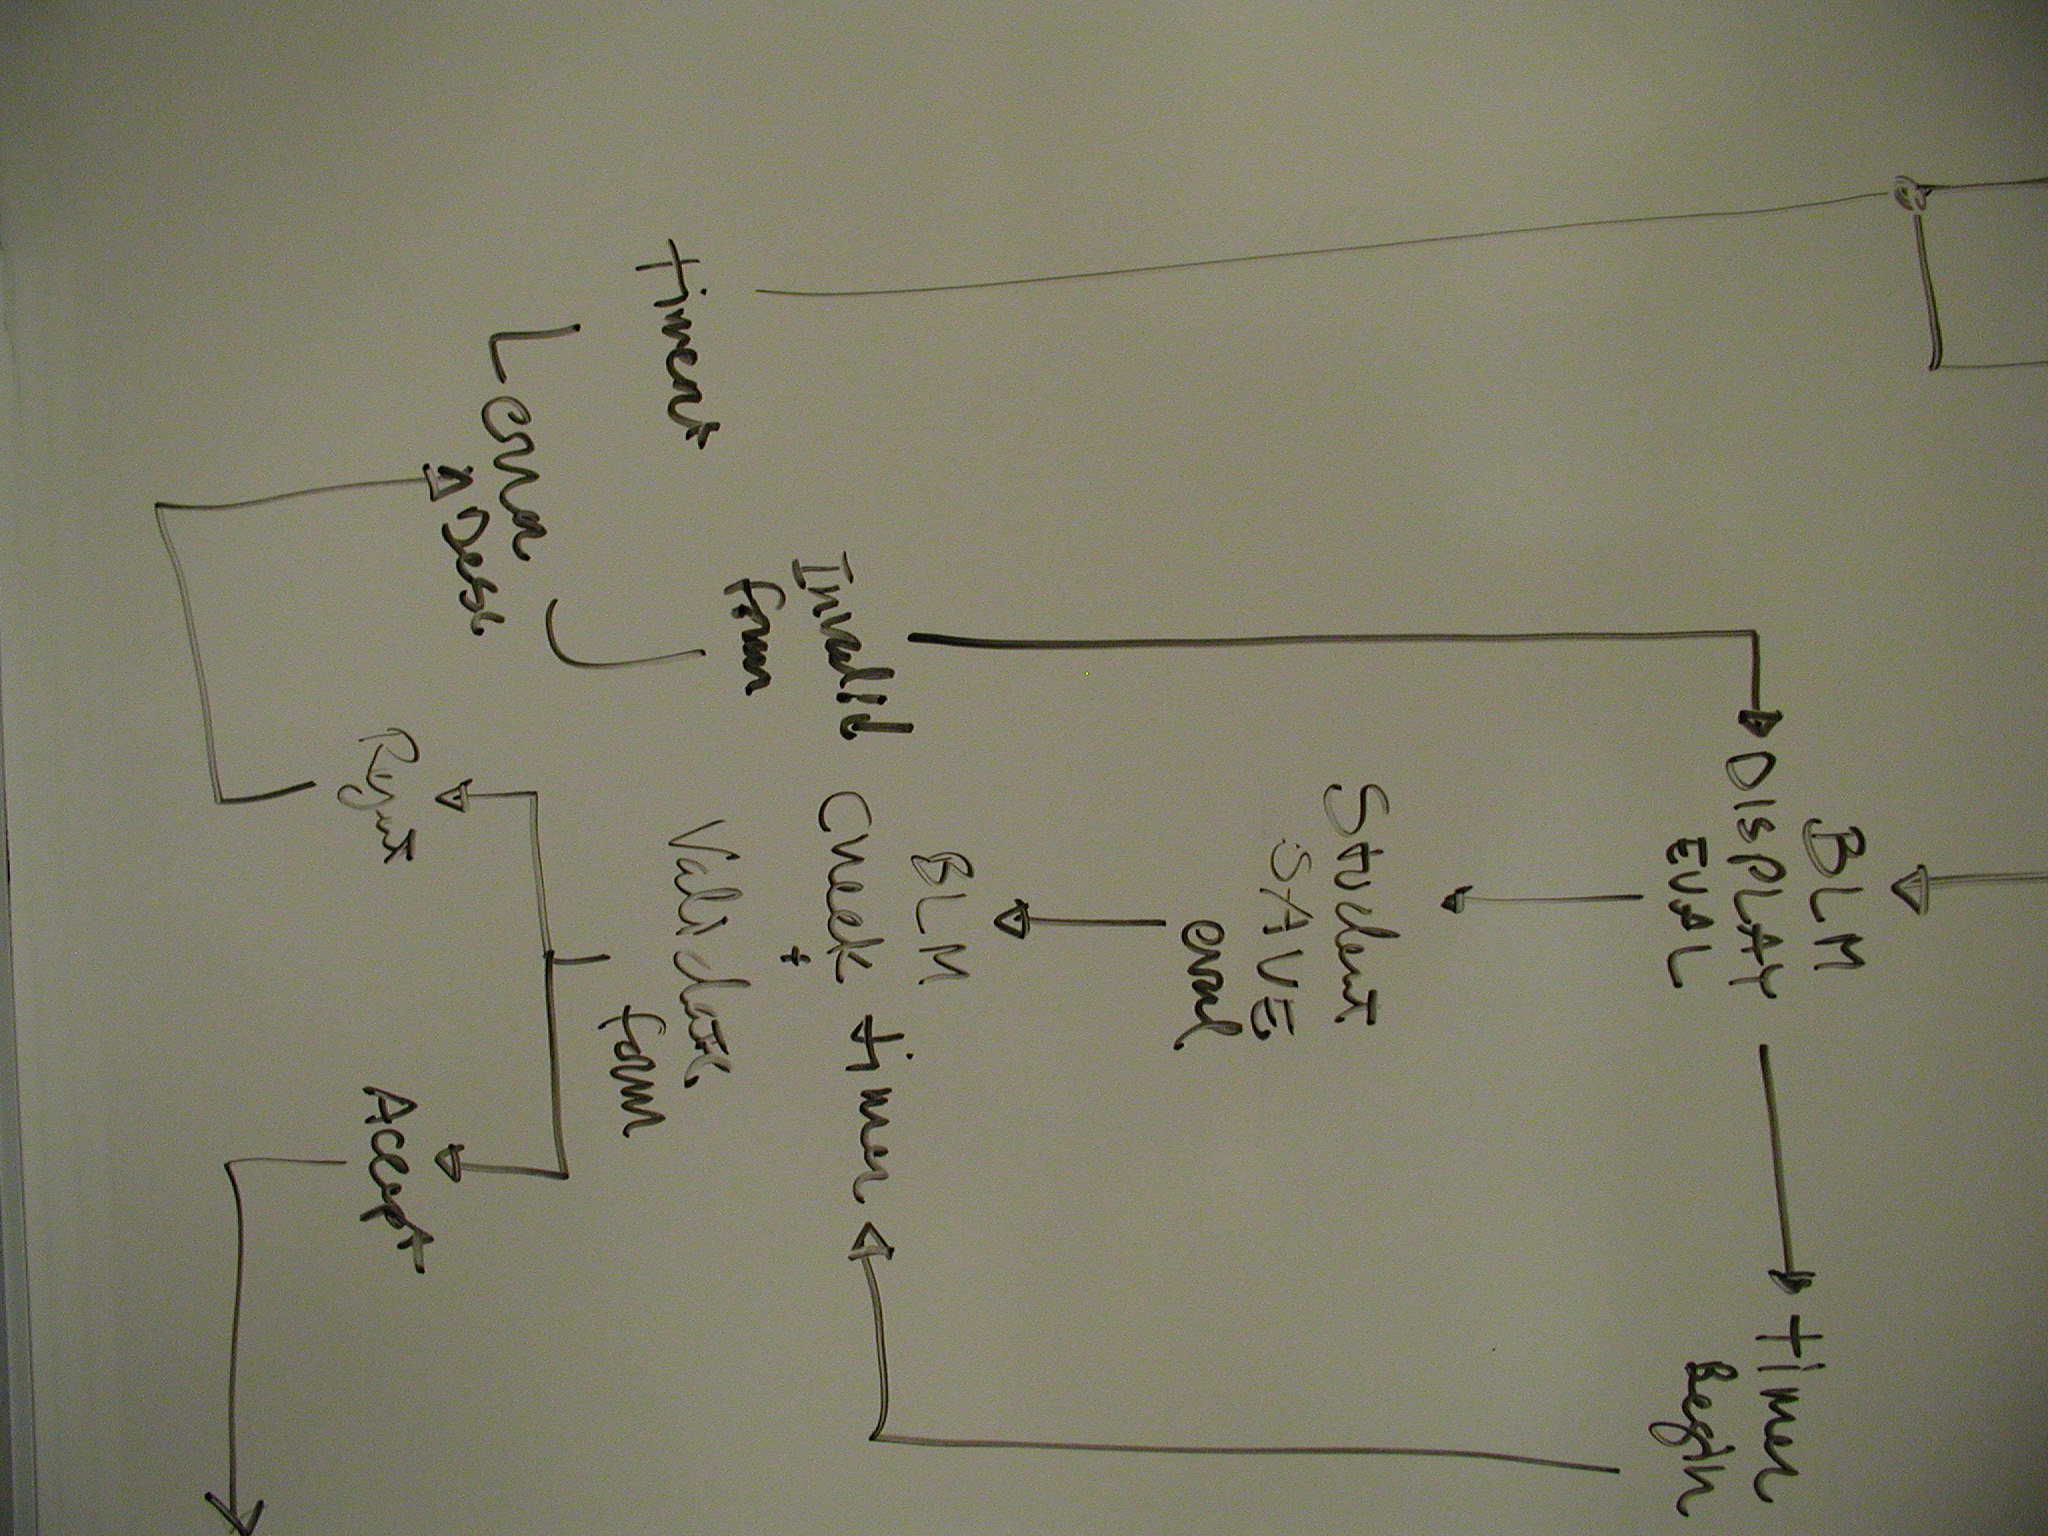 BLM
DISPLAY
EVAL
Timer
Begin
Student
SAVE
eval
BLM
Check timer
+
Validate
form
Invalid
form
timeout
Error
Desc
Reject
Accept